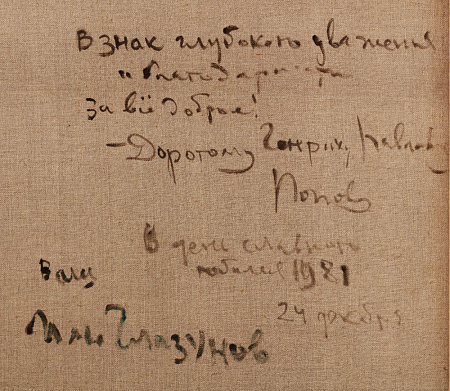 В знак глубокого уважения
и благодарности
за всё доброе!
— Дорогому Генриху Павлов
Попову
В день славного
юбилея 1981
24 декабря
Ваш
Илья Глазунов